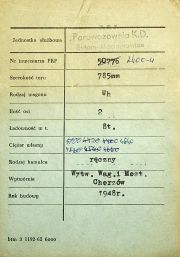 P K P
Jednostka służbowa
Parowozownia K.D.
Nr inwentarza PKP 50776 2400-4
Szerokość toru 785mm
Rodzaj wagonu Wh
Ilość osi 2
Ładowność w t. 8t.
Ciężar własny
Rodzaj hamulca ręczny
Wytwórnia Wytw. Wag.i Most. Chorzów
Rok budowy 1948r.